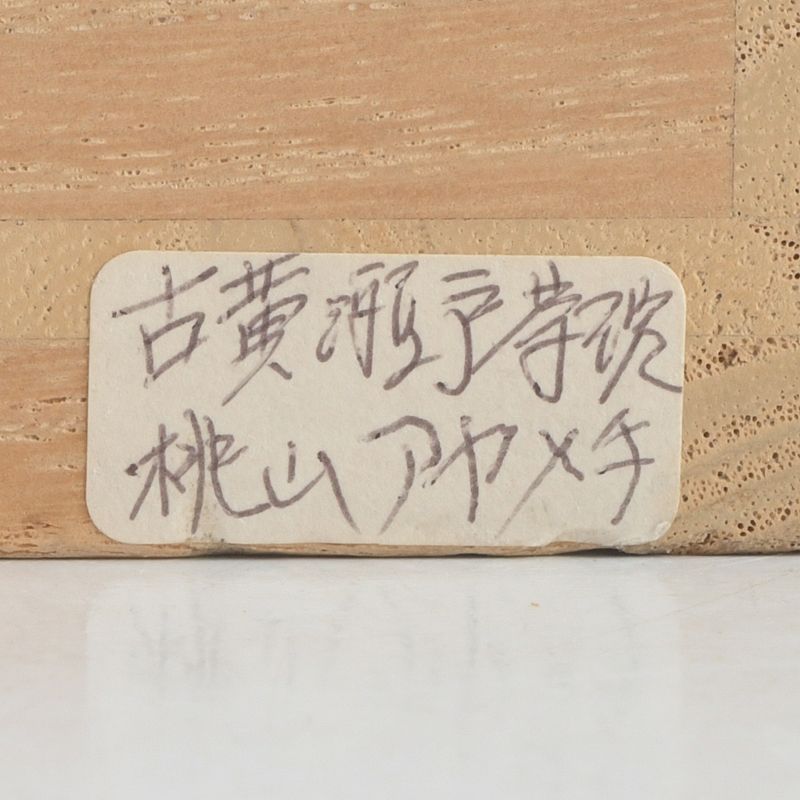 古黄瀬戸茶碗
桃山アヤメ手